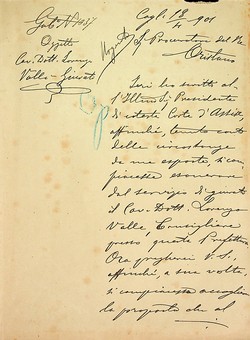 Gab. N 1037
Oggetto
Cav. Dott. Lorenzo
Valle - Giurato
Cagl. 18 901
Procuratore del Re
Oristano
Ieri ho scritto al
l'Illmo Sig. Presidente
di codesta Corte d'Assise
affinchè, tenuto conto
delle circostanze
da me esposte, si com
piacesse esonerare
dal servizio di giurato
il Cav. Dott. Lorenzo
Valle, Consigliere
presso questa Prefettura
Ora pregherei V. S.,
affinchè, a sua volta,
si compiacesse accogliere
la proposta che al